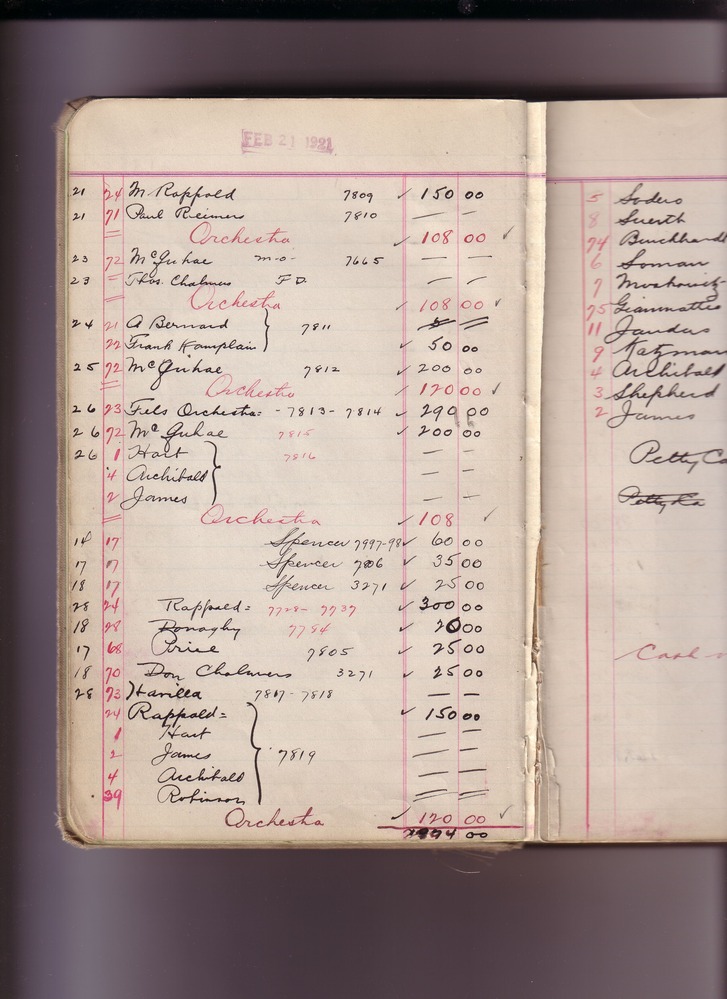 FEB 21 1921
21 24 M. Rappold 7809 ✓ 150 00
21 71 Paul Reimers 7810 — —
= Orchestra ✓ 108 00 ✓
23 72 McGuhae m-o- 7665 — —
23 = Thos. Chalmers F D. — —
= Orchestra ✓ 108 00 ✓
24 21 A Bernard } 7811
22 Frank Kamplain ✓ 50 00
25 72 McGuhae 7812 ✓ 200 00
= Orchestra ✓ 120 00 ✓
26 23 Fels Orchestra= - 7813 - 7814 ✓ 290 00
26 72 McGuhae 7815 ✓ 200 00
26 1 Hart } 7816 — —
4 Archibald — —
2 James — —
= Orchestra ✓ 108 ✓
14 17 Spencer 7997-98 ✓ 60 00
17 17 Spencer 7806 ✓ 35 00
18 17 Spencer 3271 ✓ 25 00
28 24 Rappold= 7728- 7737 ✓ 300 00
18 28 Donaghy 7794 ✓ 20 00
17 68 Price 7805 ✓ 25 00
18 70 Don Chalmers 3271 ✓ 25 00
28 73 Havilla 7817 - 7818 — —
24 Rappold= ✓ 150 00
1 Hart — —
2 James } 7819 — —
4 Archibald — —
39 Robinson
Orchestra ✓ 120 00 ✓
94 00
5 Sodero
8 Suerth
74 Burckhardt
6 Soman
7 Moskowitz
75 Giammatteo
11
9 Katzman
4 Archibald
3 Shepherd
2 James
Petty Ca
Petty Ca
Cash